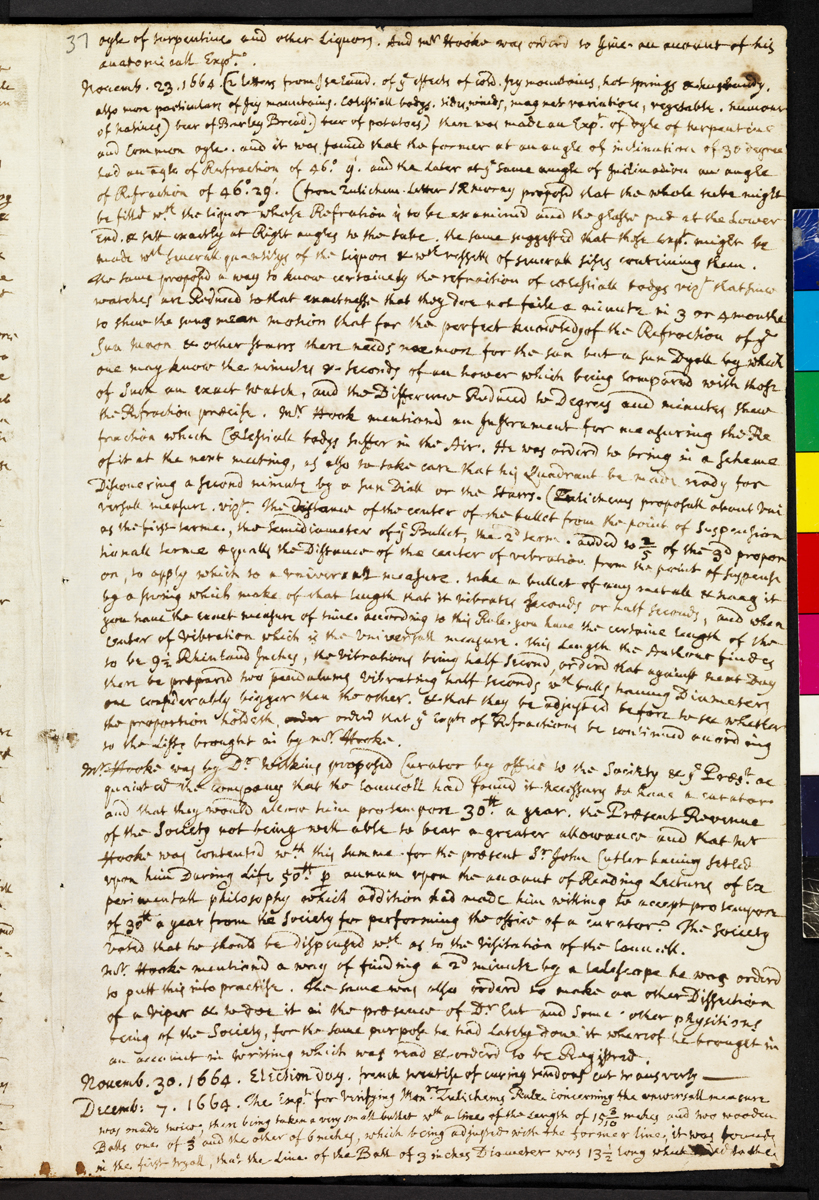 37 oyle of turpentine and other Liquors. And mr Hooke was orderd to Giue an account of his
anatomicall Expt.
Nouemb. 23. 1664. (2 letters from Iseland. of ye effects of cold. Icy mountains, hot springs &
also more particulars of Icy mountains. Cœlestiall bodys. winds, magnet variations, vegetable. humour
of natiues) beer of Barley Bread.) beer of potatoes) there was made an Expt. of oyle of turpentine
and common oyle. and it was found that the former at an angle of inclination of 30 degree
had an angle of Refraction of 46°. 9'. and the later at ye same angle of Inclination an angle
of Refraction of 46°. 29. (from Zulichem. Letter Sr R moray proposd that the whole tube might
be filld wth the liquor whose Refration is to be examined and the glasse put at the Lower
End. & sett exactly at Right angles to the tube. the same suggested that these Expts might be
made wth seuerall quantitys of the Liquors & wth vessells of seuerall sises containing them.
the same proposd a way to know certainely the refraction of cœlestiall bodys vizt. that since
watches are Reduced to that exactnesse that they doe not faile a minute in 3 or 4 months
to shew the suns mean motion that for the perfect knowledg of the Refraction of ye
Sun moon & other starrs there needs noe more for the sun but a sun Dyall by which
one may know the minutes & seconds of an hower which being compared with those
of Such an exact watch, and the Difference Reduced to Degrees and minutes shew
the Refraction præcise. Mr Hook mentiond an Instrument for measuring the Re
fraction which Cœlestiall bodys suffer in the Air. He was orderd to bring in a scheme
of it at the next meeting, as also to take care that his Quadrant be made ready for
Discouering a second minute by a sun Diall or the starrs. (Zulichems proposall about Vni
versall measure. vizt. The Distance of the center of the bullet from the point of Suspension
as the first terme, the semidiameter of ye Bullet, the 2d term. added to 2/5 of the 3d propor
tionall terme equalls the Distance of the center of vibration from the point of suspensi
on, to apply which to a vniversall measure. take a bullet of any mettall & hang it
by a string which make of that length that it vibrates seconds or half seconds, and when
you haue the exact measure of time. according to this Rule. you haue the certaine length of the
center of Vibration which is the Vniversall measure. this Length the Authour findes
to be 9 1/2 Rhinland Inches, the vibrations being half second, orderd that against next Day
there be prepared two pendulums vibrating half seconds wth balls hauing Diameters
one considerably bigger then the other. & that they be adjusted before to see whether
the proportion holdeth, order orderd that ye Expts of Refractions be continued according
to the Liste brought in by mr. Hooke.
Mr. Hooke was by Dr. Wilkins proposed Curator by office to the Society & ye Præst. ac
quainted the company that the Councell had found it necessary to haue a curator
and that they would allow him pro tempore 30lb. a year. the Present Revenue
of the Society not being well able to bear a greater allowance and that mr
Hooke was contented wth this summe for the present Sr. John Cutler hauing setled
vpon him During Life 50lb. p annum vpon the account of Reading Lectures of Ex
perimentall philosophy which addition had made him willing to accept pro tempore
of 30lb a year from the Society for performing the office of a curator. The Society
voted that he should be dispensed wth as to the visitation of the Councell.
Mr. Hooke mentiond a way of finding a 2d minute by a telescope he was orderd
to putt this into practise. The same was also orderd to make an other Dissection
of a viper & to doe it in the presence of Dr. Ent and some other physitions
being of the Society, for the same purpose he had lately done it whereof he brought in
an account in writing which was read & orderd to be Registred.
Nouemb. 30. 1664. Election day. french treatise of curing tendons cut transversly
Decemb: 7. 1664. The Expt. for Verifying Monr. Zulichems Rule concerning the vniversall measure
was made twice, there being taken a very small bullet wth a line of the length of 15 3/10 inches and two wooden
Balls one of 3 and the other of 6 inches, which being adjusted with the former line, it was found
in the first tryall, that the Line of the Ball of 3 inches Diameter was 13 1/2 long which to the